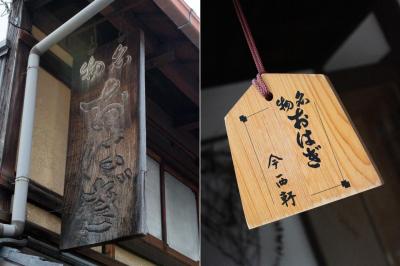 名物
おはぎ
名物
おはぎ
今西軒